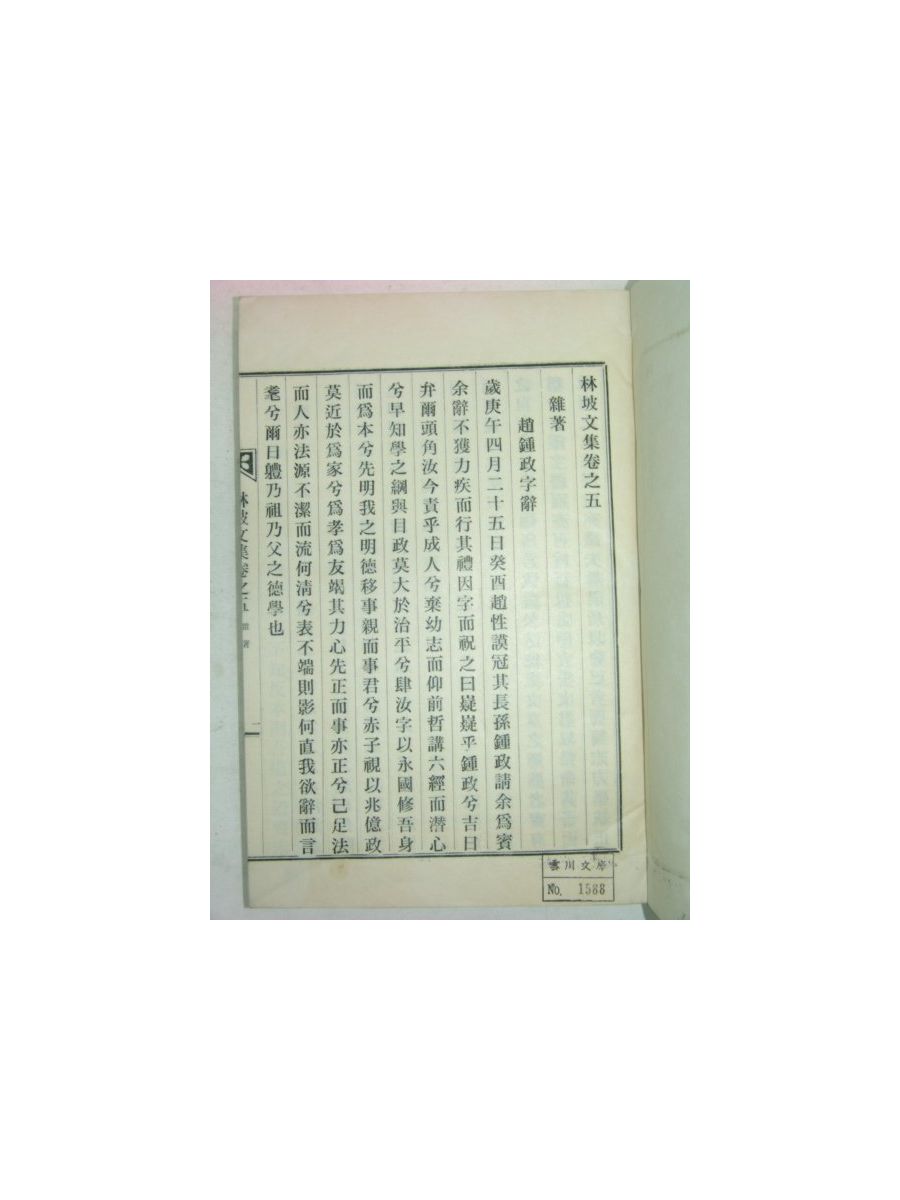 林坡文集卷之五
雜著
趙鍾政字辭
歲庚午四月二十五日癸酉趙性謨冠其長孫鍾政請余爲賓
余辭不獲力疾而行其禮因字而祝之曰嶷嶷乎鍾政兮吉日
弁爾頭角汝今責乎成人兮棄幼志而仰前哲講六經而潛心
兮早知學之綱與目政莫大於治平兮肆汝字以永國修吾身
而爲本兮先明我之明德移事親而事君兮赤子視以兆億政
莫近於爲家兮爲孝爲友竭其力心先正而事亦正兮己足法
而人亦法源不潔而流何淸兮表不端則影何直我欲辭而言
耄兮爾曰軆乃祖乃父之德學也
林坡文集卷之五 雜著 一
雲川文庫
No. 1588